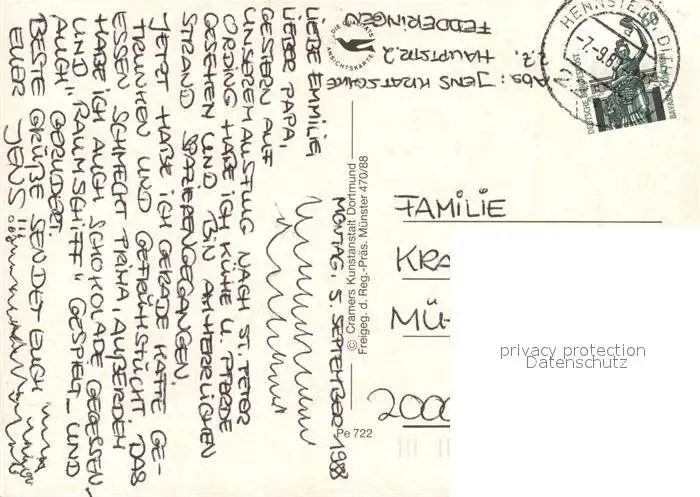 MONTAG, 5. SEPTEMBER 1988
LIEBE EMMILIE,
LIEBER PAPA,
GESTERN AUF
UNSEREM AUSFLUG NACH ST. PETER
ORDING HABE ICH KÜHE U. PFERDE
GESEHEN UND BIN AM HERRLICHEN
STRAND SPAZIERENGEGANGEN.
JETZT HABE ICH GERADE KAFFE GE-
TRUNKEN UND GEFRÜHSTÜCKT. DAS
ESSEN SCHMECKT PRIMA, AUßERDEM
HABE ICH AUCH SCHOKOLADE GEGESSEN
UND "RAUMSCHIFF" GESPIELT UND
AUCH GERUDERT.
BESTE GRÜßE SENDET EUCH
EUER JENS!!!
Abs.: JENS KRATSCHKE
HAUPTSTR. 2
FEDDERINGEN
DIE QUALITÄTS
ANSICHTSKARTE
© Cramers Kunstanstalt Dortmund
Freigeg. d. Reg.-Präs. Münster 470/88
Pe 722
HENNSTEDT, DITHM
-7.-9.8
DEUTSCHE BUNDESPOST
60
FAMILIE
KRA
MÜ
2000
privacy protection
Datenschutz